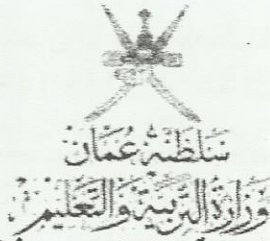 سَلطنَة عُمَان
وَزارَة التَّربيَة وَالتَّعليم